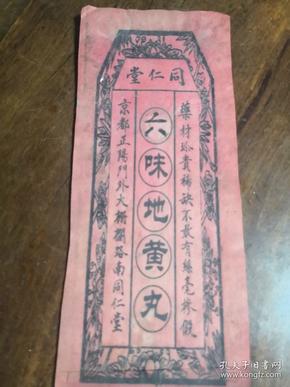 同仁堂
藥材珍貴稀缺不敢有絲毫摻假
六味地黄丸
京都正陽門外大栅欄路南同仁堂
孔夫子旧书网